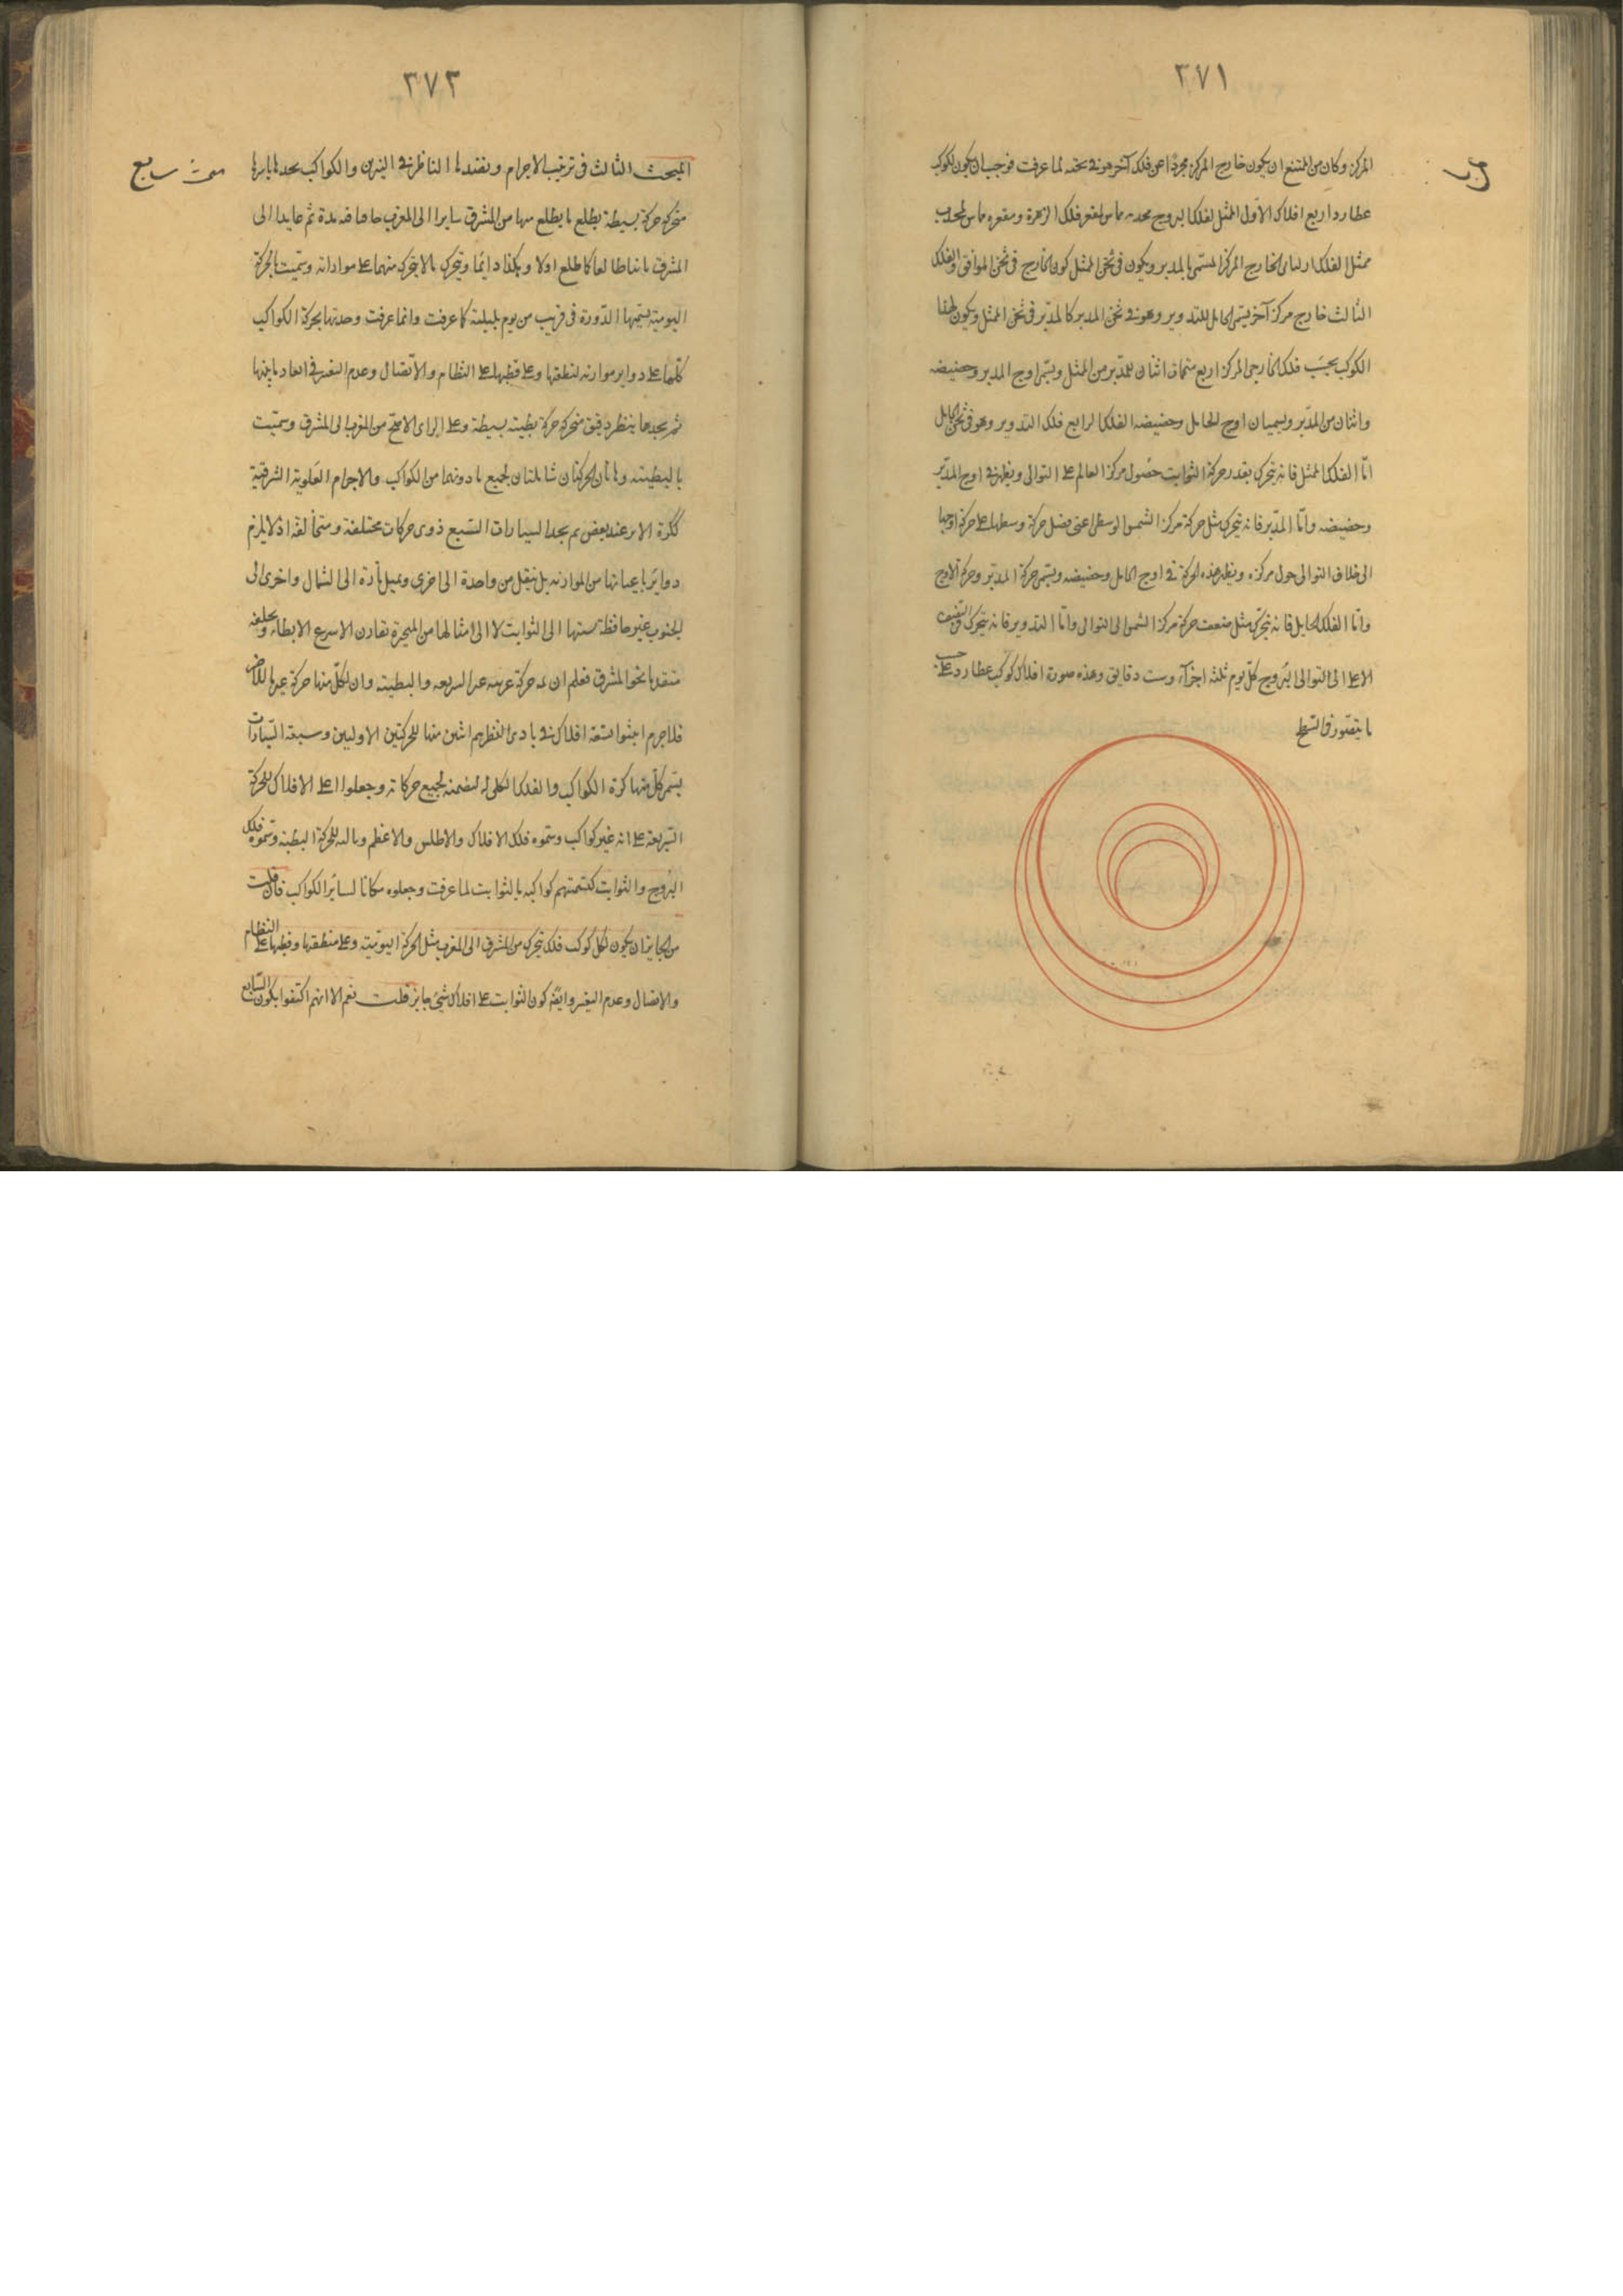 ٣٧١
المركز وكان من الممتنع ان يكون خارج المركز مجردا عن فلك آخر هو فى ثخنه لما عرفت فوجب ان يكون لكوكب
عطارد اربع افلاك الاول الممثل لفلك البروج محدبه مماس لمقعر فلك الزهرة ومقعره مماس لمحدب
ممثل الفلك الخارج المركز المسمى بالمدير ويكون فى ثخن الممثل كون الخارج فى ثخن الموافق والفلك
الثالث خارج مركز آخر يسمى الحامل للتدوير وهو فى ثخن المدير كالمدير فى ثخن الممثل ويكون لهذا
الكوكب بحسب فلك الخارجى المركز اربع متممات اثنان للمدير من الممثل ويسمى اوج المدير وحضيضه
واثنان من المدير ويسميان اوج الحامل وحضيضه الفلك الرابع فلك التدوير وهو فى ثخن الحامل
امّا الفلك الممثل فانه يتحرك بقدر حركة الثوابت حول مركز العالم على التوالى ويظهر فى اوج المدير
وحضيضه وامّا المدير فانه يتحرك مثل حركة مركز الشمس الوسطى اعنى فضل حركة وسطها على حركة اوجها
الى خلاف التوالى حول مركزه ويظهر هذه الحركة فى اوج الحامل وحضيضه ويسمى حركة المدير وحركة الاوج
وامّا الفلك الحامل فانه يتحرك مثل ضعف حركة مركز الشمس الى التوالى وامّا التدوير فانه يتحرك النصف
الاعلى الى التوالى البروج كل يوم ثلثه اجزآء وست دقايق وهذه صورة افلاك كوكب عطارد على حسب
ما يتصور فى السطح
٣٧٣
المبحث الثالث فى ترتيب الاجرام ونضدها الناظر فى النيرين والكواكب يجدها باسرها
متحركه حركة بسيطة يطلع ما يطلع منها من المشرق سايرا الى المغرب مدة ثم عايدا الى
المشرق كما طلع اولا وهكذا دايما منهما على وسميت بالحركة
اليومية يتمها الدورة فى قريب من يوم بليلته كما عرفت وانما عرفت وحدتها بحركة الكواكب
كلها على دواير موازية لمنطقتها وعلى قطبها على النظام والاتصال وعدم التغير فى ابعاد ما بينها
ثم يجدها بنظر دقيق متحركه حركة بطيئة بسيطة وعلى الراى الاصح من المغرب الى المشرق وسميت
بالبطيئة وهاتان الحركتان شاملتان لجميع ما دونهما من الكواكب والاجرام العلوية الشرقية
ككرة الاثير عند بعضهم ثم يجد السيارات السبع ذوى حركات مختلفة ومتخالفة اذ لا يلزم
دواير باعيانها من الموازية بل ينتقل من واحدة الى اخرى ويميل تارة الى الشمال واخرى الى
الجنوب غير حافظة نسبتها الى الثوابت لا الى امثالها من المتحيرة يقارن الاسرع الابطاء ويخلفه
متقدما نحو المشرق فعلم ان له حركة غير السريعه والبطيئه وان لكل منها حركة غير ما للآخر
فلا جرم اثبتوا تسعة افلاك فى بادى النظر اثنين منها للحركتين الاوليين وسبعة للسيارات
يسمى كل منها كرة الكواكب والفلك الكلى له لتضمنه لجميع حركاته وجعلوا اعلى الافلاك للحركة
السريعة على انه غير كواكب وسموه فلك الافلاك والاطلس والاعظم وما يليه للحركة البطيئة وسموه فلك
البروج والثوابت لتسميتهم كواكبه بالثوابت لما عرفت وجعلوه مكانا لساير الكواكب فان قلت
من الجايز ان يكون لكل كوكب فلك يتحرك من المشرق الى المغرب مثل الحركة اليومية وعلى منطقتها وقطبها على النظام
والاتصال وعدم التغير وايضا كون الثوابت على افلاك شتى جايز قلت نعم الا انهم اكتفوا بكون